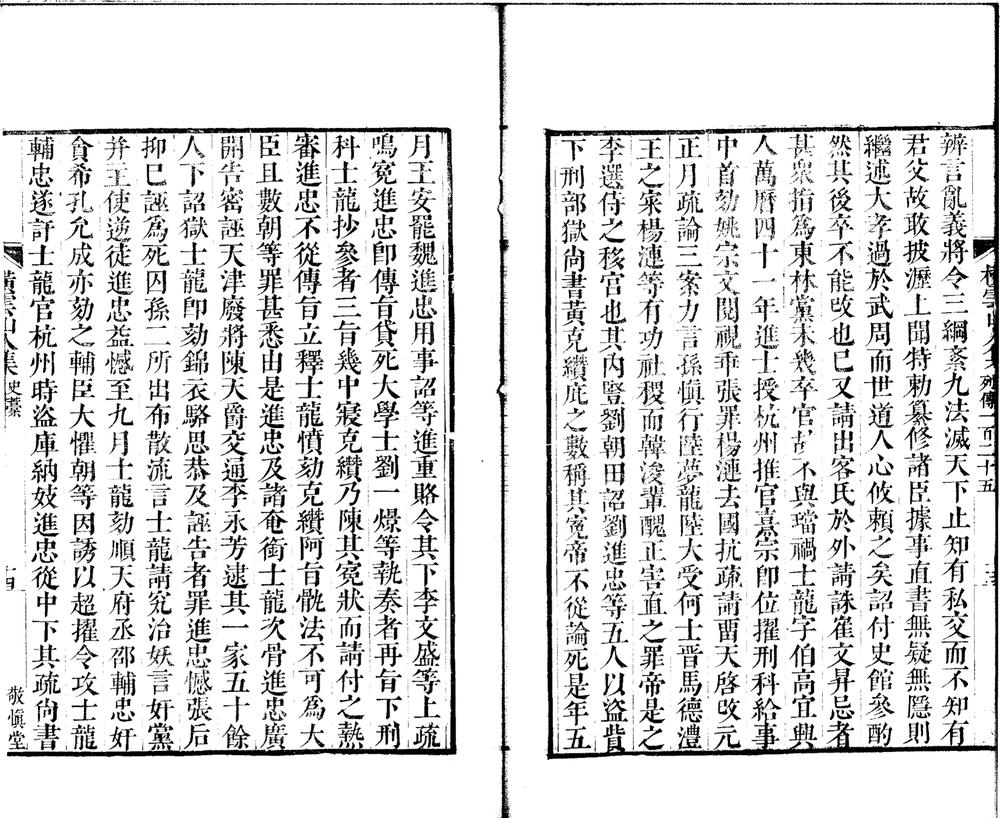 辨言亂義將令三綱紊九法滅天下止知有私交而不知有
君父故敢披瀝上聞特勅纂修諸臣據事直書無疑無隱則
繼述大孝過於武周而世道人心攸頼之矣詔付史館參酌
然其後卒不能改也已又請出客氏於外請誅崔文昇忌者
甚衆指爲東林黨未幾卒官故不與璫禍士龍字伯高宜興
人萬曆四十一年進士授杭州推官熹宗即位擢刑科給事
中首劾姚宗文閱視乖張罪楊漣去國抗疏請畱天啓改元
正月疏論三案力言孫慎行陸夢龍陸大受何士晉馬德灃
王之寀楊漣等有功社稷而韓浚輩醜正害直之罪帝是之
李選侍之移宮也其内豎劉朝田詔劉進忠等五人以盜貲
下刑部獄尚書黃克纘庇之數稱其寃帝不從論死是年五
月王安罷魏進忠用事詔等進重賂令其下李文盛等上疏
鳴寃進忠卽傳旨貸死大學士劉一燝等執奏者再旨下刑
科士龍抄參者三旨幾中寢克纘乃陳其寃狀而請付之熱
審進忠不從傳旨立釋士龍憤劾克纘阿旨骩法不可爲大
臣且數朝等罪甚悉由是進忠及諸奄銜士龍次骨進忠廣
開告密誣天津廢將陳天爵交通李永芳逮其一家五十餘
人下詔獄士龍卽劾錦衣駱思恭及誣告者罪進忠憾張后
抑巳誣爲死囚孫二所出布散流言士龍請究治妖言奸黨
并主使逆徒進忠益憾至九月士龍劾順天府丞邵輔忠奸
貪希孔允成亦劾之輔臣大懼朝等因誘以超擢令攻士龍
輔忠遂訐士龍官杭州時盜庫納妓進忠從中下其疏尚書
橫雲山人集 史藁
十四
敬愼堂